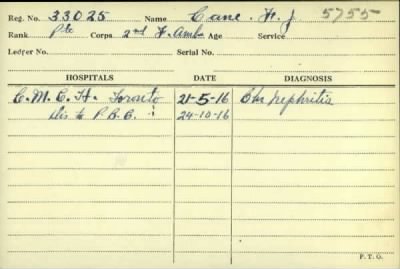 Reg. No. 33025 Name Cane. H. J. 5755
Rank Pte Corps 2nd F. Amb. Age Service
Ledger No. Serial No.
HOSPITALS DATE DIAGNOSIS
C. M. C. H. Toronto 21-5-16 Chr Nephritis
Dis to P. B. C. 24-10-16
P. T. O.